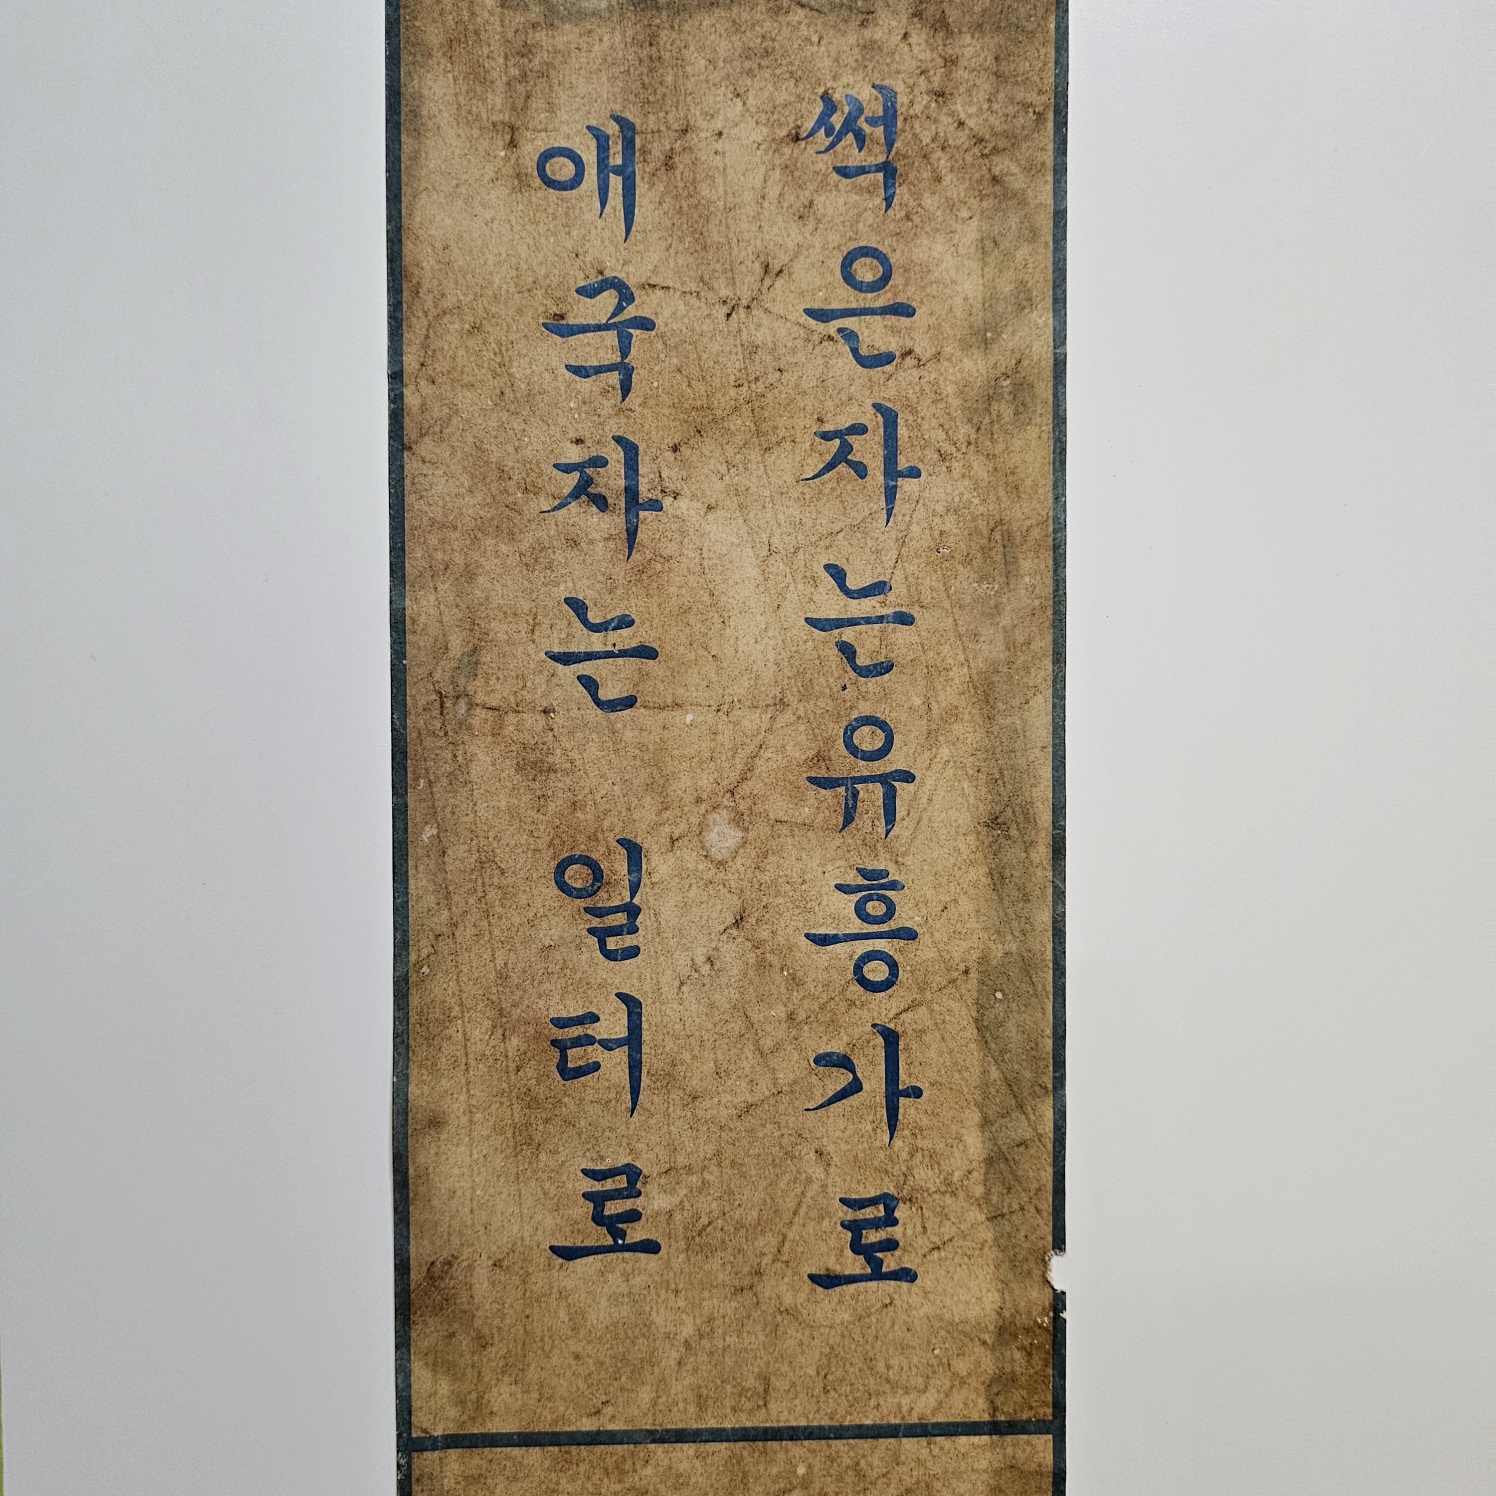 썩은자는유흥가로
애국자는 일터로